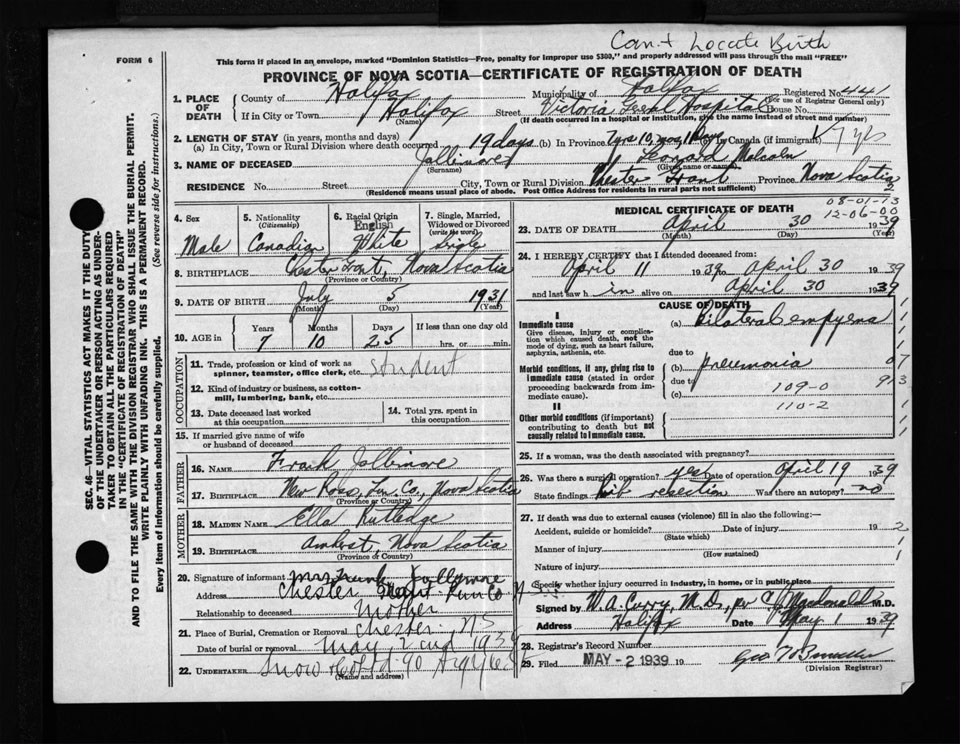 Can't Locate Birth
FORM 6
This form if placed in an envelope, marked "Dominion Statistics—Free, penalty for improper use $300," and properly addressed will pass through the mail "FREE"
PROVINCE OF NOVA SCOTIA—CERTIFICATE OF REGISTRATION OF DEATH
1. PLACE OF DEATH
County of Halifax Municipality of Halifax Registered No. 441
(For use of Registrar General only)
If in City or Town Halifax Street Victoria Hospital House No.
(Name) (If death occurred in a hospital or institution, give the name instead of street and number)
2. LENGTH OF STAY (in years, months and days)
(a) In City, Town or Rural Division where death occurred 19 days (b) In Province 7 yrs 10 mos (c) In Canada (if immigrant)
3. NAME OF DECEASED Jollimore Leonard Malcolm
(Surname) (Given name or names)
RESIDENCE No. Street City, Town or Rural Division Chester Grant Province Nova Scotia
(Residence means usual place of abode. Post Office Address for residents in rural parts not sufficient)
SEC. 46—VITAL STATISTICS ACT MAKES IT THE DUTY
OF THE UNDERTAKER OR PERSON ACTING AS UNDER-
TAKER TO OBTAIN ALL THE PARTICULARS REQUIRED
IN THE "CERTIFICATE OF REGISTRATION OF DEATH"
AND TO FILE THE SAME WITH THE DIVISION REGISTRAR WHO SHALL ISSUE THE BURIAL PERMIT.
WRITE PLAINLY WITH UNFADING INK. THIS IS A PERMANENT RECORD.
Every item of information should be carefully supplied. (See reverse side for instructions.)
4. Sex
Male
5. Nationality
(Citizenship)
Canadian
6. Racial Origin
English
White
7. Single, Married,
Widowed or Divorced
(write the word)
Single
8. BIRTHPLACE Chester Grant, Nova Scotia
(Province or Country)
9. DATE OF BIRTH July 5 1931
(Month) (Day) (Year)
10. AGE in
Years Months Days If less than one day old
7 10 25 hrs. or min.
OCCUPATION
11. Trade, profession or kind of work as
spinner, teamster, office clerk, etc. student
12. Kind of industry or business, as cotton-
mill, lumbering, bank, etc.
13. Date deceased last worked
at this occupation
14. Total yrs. spent in
this occupation
15. If married give name of wife
or husband of deceased
FATHER
16. NAME Frank Jollimore
17. BIRTHPLACE New Ross, Lun. Co., Nova Scotia
(Province or Country)
MOTHER
18. MAIDEN NAME Ella Rutledge
19. BIRTHPLACE Amherst, Nova Scotia
(Province or Country)
20. Signature of informant Mrs Frank Jollymore
Address Chester Grant Lun Co N.S
Relationship to deceased Mother
21. Place of Burial, Cremation or Removal Chester N.S
Date of burial or removal May 2nd 1939
22. UNDERTAKER Snow & Co Ltd 90 Argyle St
(Name and address)
MEDICAL CERTIFICATE OF DEATH
08-01-73
12-06-00
23. DATE OF DEATH April 30 1939
(Month) (Day) (Year)
24. I HEREBY CERTIFY that I attended deceased from:
April 11 1939 to April 30 1939
and last saw h im alive on April 30 1939
CAUSE OF DEATH
I
Immediate cause
Give disease, injury or complica-
tion which caused death, not the
mode of dying, such as heart failure,
asphyxia, asthenia, etc.
(a) Bilateral empyema
due to
Morbid conditions, if any, giving rise to
immediate cause (stated in order
proceeding backwards from im-
mediate cause).
(b) Pneumonia 07
due to 913
(c) 109-0
110-2
II
Other morbid conditions (if important)
contributing to death but not
causally related to immediate cause.
25. If a woman, was the death associated with pregnancy?
26. Was there a surgical operation? yes Date of operation April 19 1939
State findings Rib resection Was there an autopsy? no
27. If death was due to external causes (violence) fill in also the following:
Accident, suicide or homicide? Date of injury 19
(State which)
Manner of injury
(How sustained)
Nature of injury
Specify whether injury occurred in industry, in home, or in public place
Signed by W. A. Curry, M.D., pr C. J. Macdonald M.D.
Address Halifax Date May 1 1939
28. Registrar's Record Number
29. Filed MAY-2 1939 19
(Division Registrar)